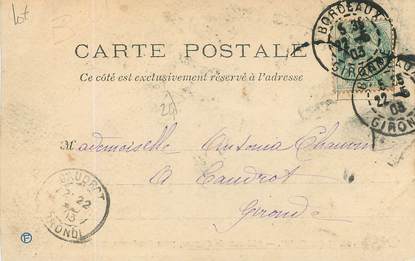 Lot
BORDEAUX
22 -5
03
GIRONDE
CARTE POSTALE
Ce côté est exclusivement réservé à l'adresse
BORDEAUX
22 -5
03
GIRONDE
Mademoiselle Antonia Chauvin
A Caudrot
Gironde
CAUDROT
22
03
GIRONDE